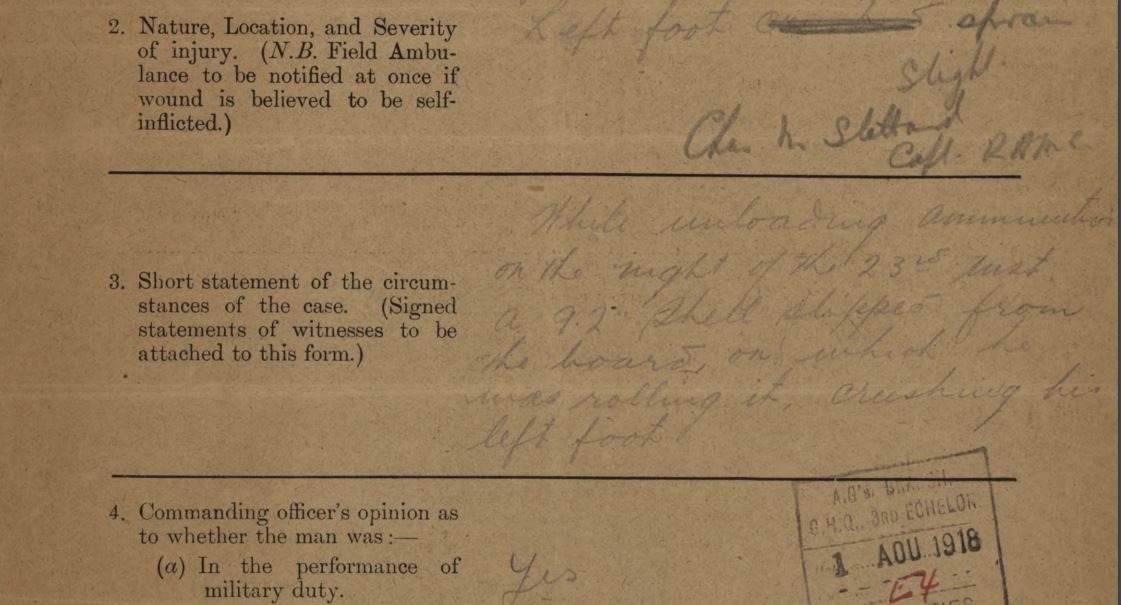 2. Nature, Location, and Severity
of injury. (N.B. Field Ambu-
lance to be notified at once if
wound is believed to be self-
inflicted.)
Left foot
Slight.
Chas M.
Capt. RAMC
3. Short statement of the circum-
stances of the case. (Signed
statements of witnesses to be
attached to this form.)
While unloading ammunition
on the night of the 23rd inst
a 9.2" shell slipped from
the board, on which he
was rolling it, crushing his
left foot
4. Commanding officer's opinion as
to whether the man was :—
(a) In the performance of
military duty.
Yes
A.G's. BRANCH
G.H.Q., 3RD ECHELON.
1 AOU 1918